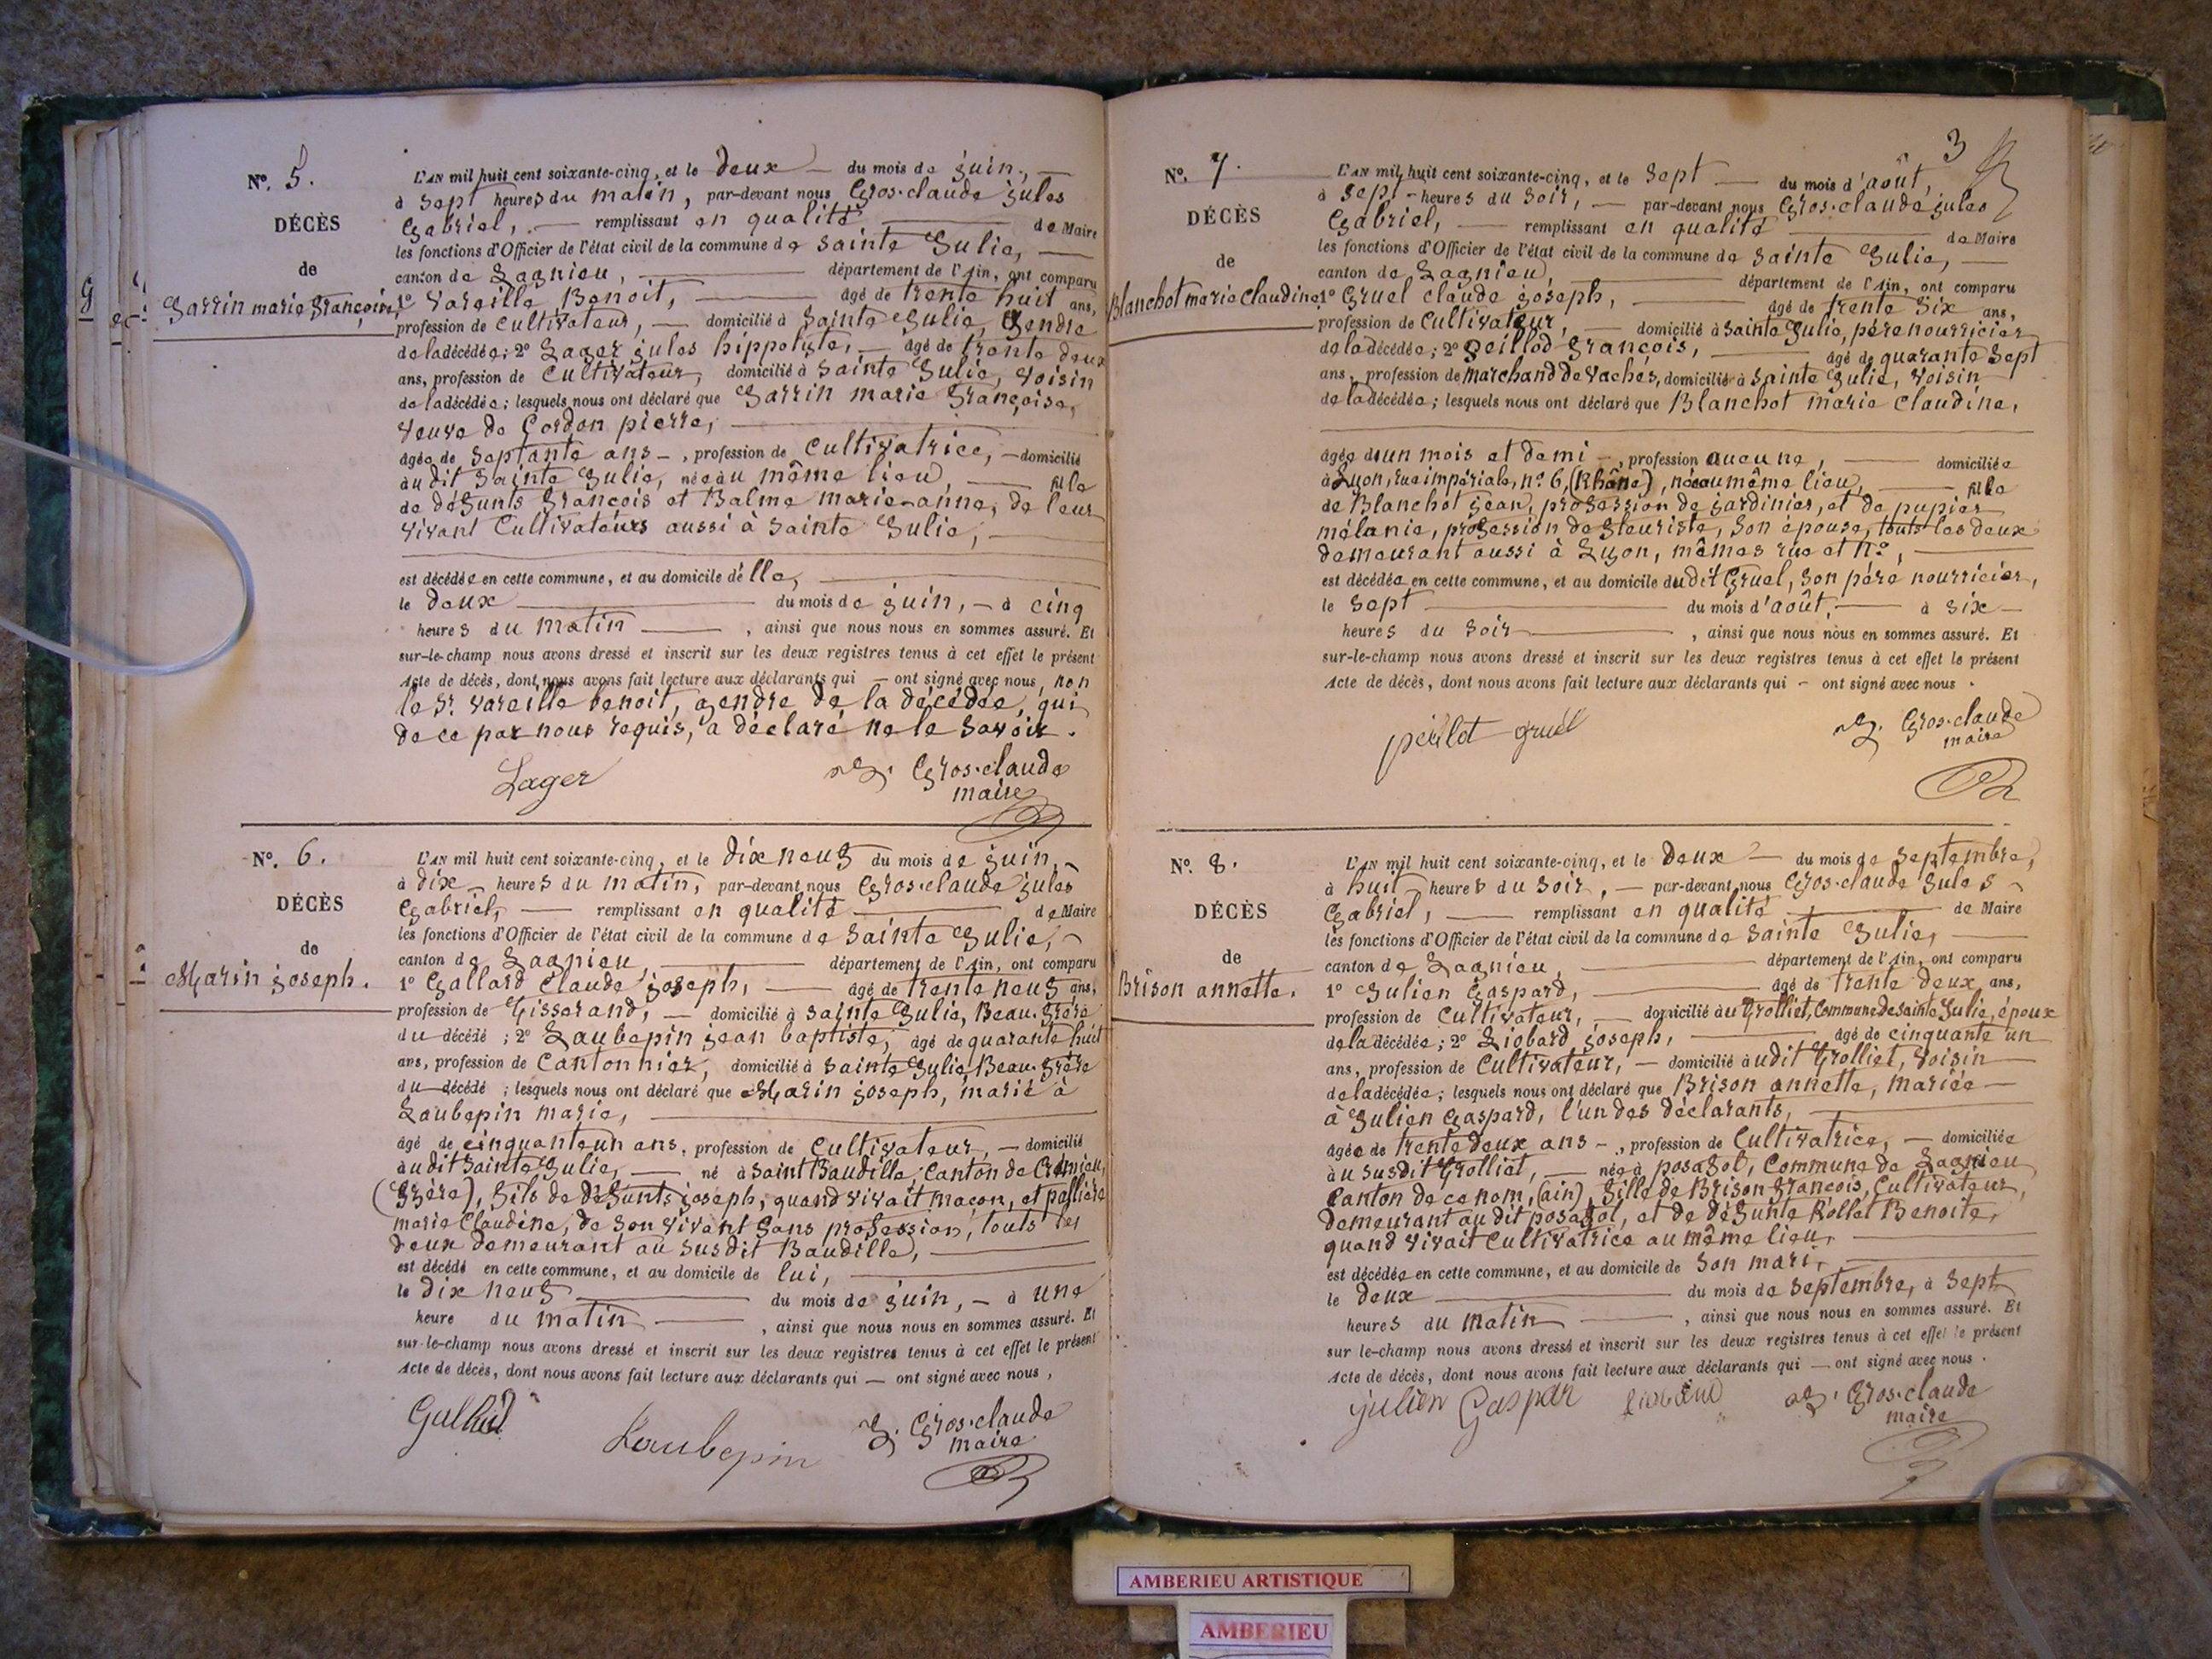 N°. 5.
DÉCÈS
de
Sarrin marie Françoise
L'AN mil huit cent soixante-cinq, et le deux — du mois de juin, —
à sept heures du matin, par-devant nous Gros-claude jules
Gabriel, — remplissant en qualité — de Maire
les fonctions d'Officier de l'état civil de la commune de Sainte Julie, —
canton de Lagnieu, — département de l'Ain, ont comparu
1° Vareille Benoit, — âgé de trente huit ans,
profession de cultivateur, — domicilié à Sainte Julie, Gendre
de la décédée; 2° Lager jules hippolyte, — âgé de trente deux
ans, profession de Cultivateur, domicilié à Sainte Julie, Voisin
de la décédée; lesquels nous ont déclaré que Sarrin marie Françoise,
Veuve de Cordon pierre, —
âgée de Septante ans —, profession de Cultivatrice, — domicilié
àu dit Sainte Julie, née àu même lieu, — fille
de défunts François et Balme marie-anne, de leur
vivant Cultivateurs aussi à Sainte Julie, —
est décédée en cette commune, et au domicile d'élle, —
le deux — du mois de juin, — à cinq
heures du matin —, ainsi que nous nous en sommes assuré. Et
sur-le-champ nous avons dressé et inscrit sur les deux registres tenus à cet effet le présent
Acte de décès, dont nous avons fait lecture aux déclarants qui — ont signé avec nous, non
le Sr. Vareille benoit, gendre de la décédée, qui
de ce par nous requis, a déclaré ne le savoir.
Lager
J. Gros-claude
maire
N°. 6.
DÉCÈS
de
Marin joseph.
L'AN mil huit cent soixante-cinq, et le dix neuf du mois de juin, —
à dix — heures du matin, par-devant nous Gros-claude jules
Gabriel, — remplissant en qualité — de Maire
les fonctions d'Officier de l'état civil de la commune de Sainte Julie, —
canton de Lagnieu — département de l'Ain, ont comparu
1° Gallard Claude joseph, — âgé de trente neuf ans,
profession de Tisserand, — domicilié à Sainte Julie, Beau-frère
du décédé; 2° Laubepin jean baptiste, âgé de quarante huit
ans, profession de Cantonnier, domicilié à Sainte Julie, Beau-frère
du décédé; lesquels nous ont déclaré que Marin joseph, marié à
Laubepin marie, —
âgé de cinquante un ans, profession de Cultivateur, — domicilié
àu dit Sainte Julie, — né à Saint Baudille, Canton de Crémieu,
(Isère), fils de défunts joseph, quand vivait maçon, et
marie Claudine, de son vivant sans profession, touts les
deux demeurant au susdit Baudille, —
est décédé en cette commune, et au domicile de lui, —
le dix neuf — du mois de juin, — à une
heure du matin —, ainsi que nous nous en sommes assuré. Et
sur-le-champ nous avons dressé et inscrit sur les deux registres tenus à cet effet le présent
Acte de décès, dont nous avons fait lecture aux déclarants qui — ont signé avec nous,
Laubepin
J. Gros-claude
maire
3
N°. 7.
DÉCÈS
de
Blanchot marie claudine,
L'AN mil huit cent soixante-cinq, et le Sept — du mois d'août,
à sept — heures du soir, — par-devant nous Gros-claude jules
Gabriel, — remplissant en qualité — de Maire
les fonctions d'Officier de l'état civil de la commune de Sainte Julie, —
canton de Lagnieu, — département de l'Ain, ont comparu
1° Gruel claude joseph, — âgé de trente six ans,
profession de Cultivateur, — domicilié à Sainte Julie, père nourricier
de la décédée; 2° peillod François, — âgé de quarante sept
ans, profession de marchand de vaches, domicilié à Sainte Julie, Voisin
de la décédée; lesquels nous ont déclaré que Blanchot marie claudine,
âgée d'un mois et demi —, profession aucune, — domiciliée
à Lyon, rue impériale, n° 6, (Rhône), née au même lieu, — fille
de Blanchot jean, profession de jardinier, et de pupier
mélanie, profession de fleuriste, son épouse, touts les deux
demeurant aussi à Lyon, mêmes rue et n°, —
est décédée en cette commune, et au domicile dudit Gruel, son père nourricier,
le Sept — du mois d'août, — à six —
heures du soir —, ainsi que nous nous en sommes assuré. Et
sur-le-champ nous avons dressé et inscrit sur les deux registres tenus à cet effet le présent
Acte de décès, dont nous avons fait lecture aux déclarants qui — ont signé avec nous.
peillot gruel
J. Gros-claude
maire
N°. 8.
DÉCÈS
de
Brison annette.
L'AN mil huit cent soixante-cinq, et le deux — du mois de septembre,
à huit — heures du soir, — par-devant nous Gros-claude Jules —
Gabriel, — remplissant en qualité — de Maire
les fonctions d'Officier de l'état civil de la commune de Sainte Julie, —
canton de Lagnieu, — département de l'Ain, ont comparu
1° Julien Gaspard, — âgé de trente deux ans,
profession de Cultivateur, — domicilié àu Trolliet, Commune de Sainte Julie, époux
de la décédée; 2° Liobard joseph, — âgé de cinquante un
ans, profession de Cultivateur, — domicilié àudit Trolliet, Voisin —
de la décédée; lesquels nous ont déclaré que Brison annette, mariée —
à Julien Gaspard, l'un des déclarants, —
âgée de trente deux ans —, profession de Cultivatrice, — domiciliée
àu susdit Trolliet, — née à posafol, Commune de Lagnieu
Canton de ce nom, (ain), fille de Brison François, Cultivateur,
demeurant au dit posafol, et de défunte Rollet Benoite,
quand vivait Cultivatrice au même lieu, —
est décédée en cette commune, et au domicile de son mari, —
le deux — du mois de septembre, à sept
heures du matin —, ainsi que nous nous en sommes assuré. Et
sur le-champ nous avons dressé et inscrit sur les deux registres tenus à cet effet le présent
Acte de décès, dont nous avons fait lecture aux déclarants qui — ont signé avec nous.
julien Gaspar liobard
J. Gros-claude
maire
AMBERIEU ARTISTIQUE
AMBERIEU